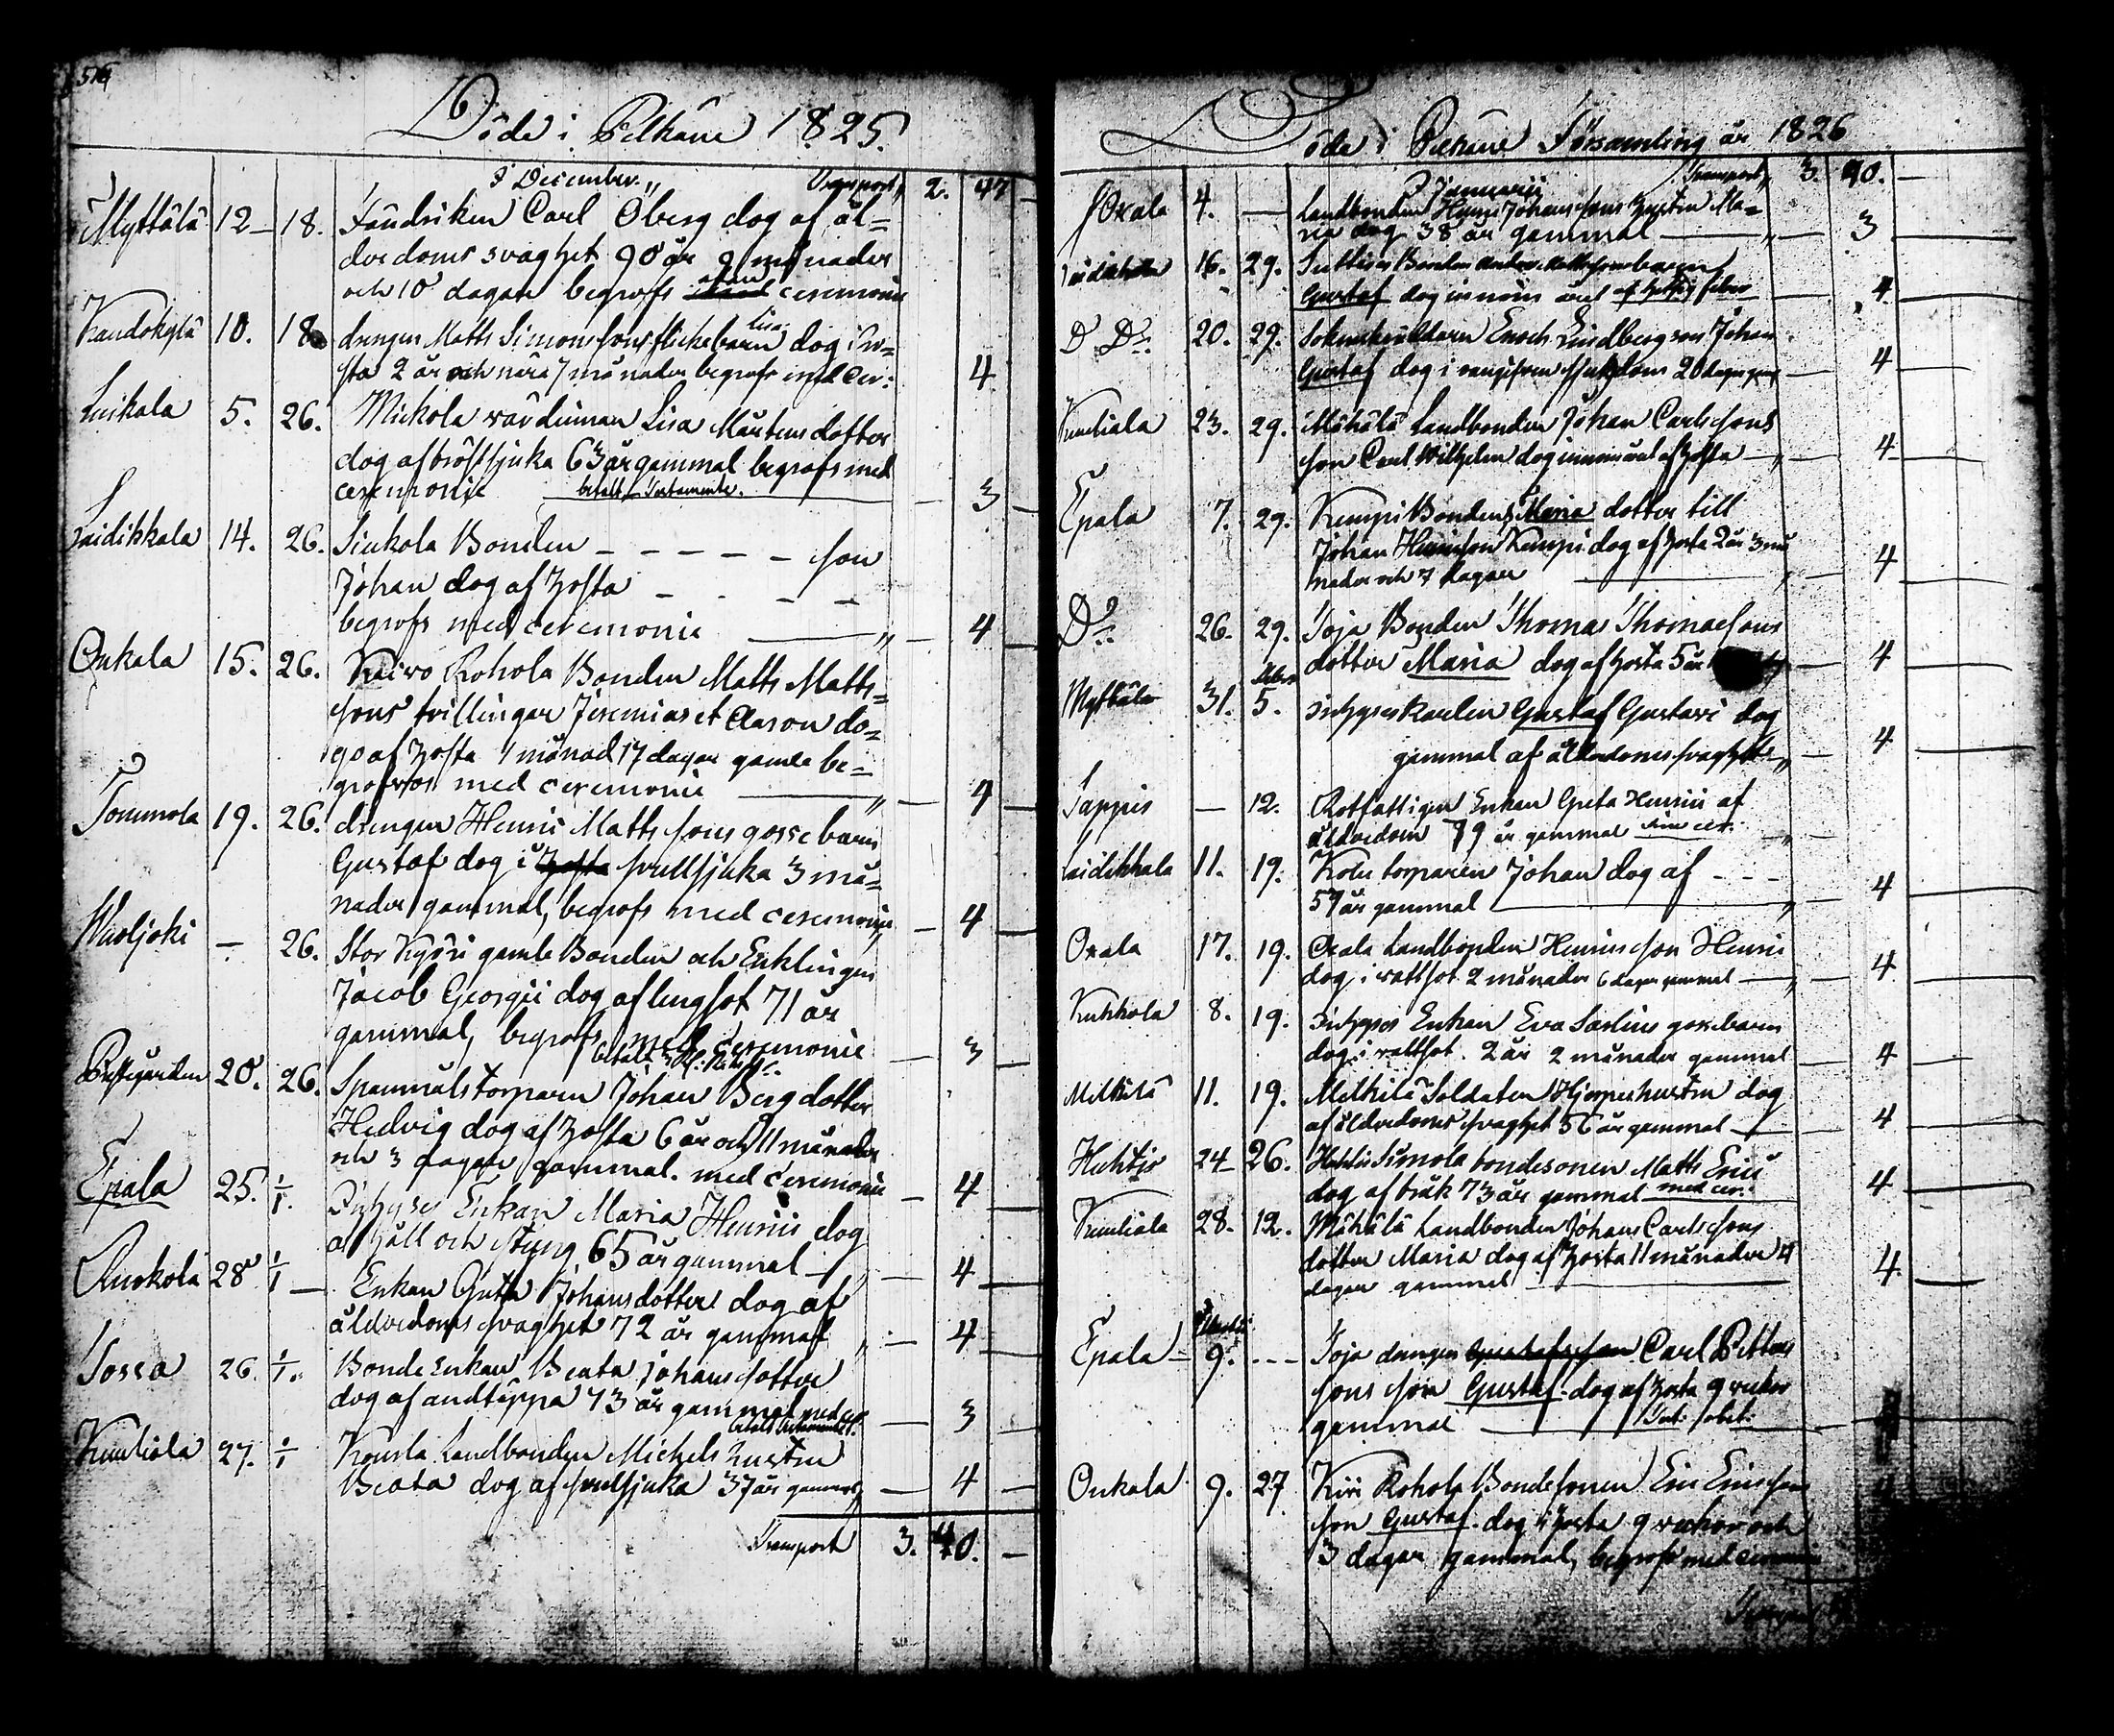 Döde i Pelkäne 1825.
I December.,, Transport,, 2. 47
Myttälä 12 – 18. Fändriken Carl Öberg dog af ål=
derdoms svaghet 90 år 9 månader
och 10 dagar begrofs utan ceremonie
10. 18 drengen Matts Simonssons flickebarn Lisa dog i
sta 2 år och nära 7 månader begrofs med Cer: 4
Luikala 5. 26. Mickola värdinnan Lisa Mårtensdotter
dog af bröstsjuka 63 år gammal begrofs med
ceremonie betalt Testamente. 3
Laidikkala 14. 26. Sinkola Bonden – – – – – son
Johan dog af hosta – – – –
begrofs med ceremonie ,, 4
Onkala 15. 26. Rohola Bonden Matts Matts=
sons tvillingar Jeremias et Aaron do=
go af hosta 1 månad 17 dagar gamle be=
grofvos med ceremonie ,, 4
Tommola 19. 26. drengen Henric Mattssons gossebarn
Gustaf dog i hosta svullsjuka 3 må=
nader gammal, begrofs med ceremonie 4
– 26. Stor Kyöri gamle Bonden och Enklingen
Jacob Georgii dog af lungsot 71 år
gammal, begrofs med ceremonie 3
betalt 3
20. 26. Spanmålstorparen Johan Berg dotter
Hedvig dog af hosta 6 år och 11 månader
och 3 dagar gammal. med ceremonie 4
Epala 25. 1/1. Inhyses Enkan Maria Henrici dog
af håll och styng 65 år gammal 4
28 1/1 Enkan Greta Johansdotter dog af
ålderdoms svaghet 72 år gammal 4
26. 1/1. Bonde Enkan Beata Johansdotter
dog af andtäppa 73 år gammal med cer. 3
betalt Testamente.
Kuuliala 27. 1/1 Landbonden Michels hustru
Beata dog af svullsjuka 37 år gammal 4
Transport 3. 40. –
Döde i Pelkäne Församling år 1826
I Januarii Transport,, 3. 40. –
Oxala 4. – Landbonden Henric Johanssons hustru Ma=
ria dog 38 år gammal ,, 3
16. 29. Bonden barn
Gustaf dog innom året af hettig feber 4
D D:o 20. 29. Enoch Lindberg son Johan
Gustaf dog i sjukdom 20 dagar gam 4
Kuuliala 23. 29. Mähälä Landbonden Johan Carlssons
son Carl Wilhelm dog innom året af hosta 4
Epala 7. 29. Kemppi Bondens Maria dotter till
Johan Henricsson Kemppi dog af hosta 2 år 3 må
nader och 7 dagar 4
D:o 26. 29. Toja Bonden Thomas Thomaesons
dotter Maria dog af hosta 5 år 4
Myttälä 31. 5. Inhyseskarlen Gustaf Gustavi dog
gammal af ålderdoms svaghet ,, 4
Sappis – 12. Rotfattigen Enkan Greta Henrici af
ålderdom 79 år gammal
Laidikkala 11. 19. torparen Johan dog af – – –
57 år gammal ,, 4
Oxala 17. 19. Oxala Landbonden Henricsson Henric
dog i vattsot 2 månader 6 dagar gammal ,, 4
Kukkola 8. 19. Inhyses Enkan Eva gossebarn
dog i vattsot. 2 år 2 månader gammal 4
Melkilä 11. 19. Melkilä Soldaten hustru dog
af ålderdoms svaghet 56 år gammal 4
24 26. Simola bondesonen Matts Erici
dog af bråk 73 år gammal med cer. 4
Kuuliala 28. 12. Mähälä Landbonden Johans Carlssons
dotter Maria dog af hosta 11 månader 4
dagar gammal 4.
Epala 9. – – – Toja drengen Gustafsson Carl Petters
sons son Gustaf dog af hosta 9 veckor
gammal
Onkala 9. 27 Rohola Bondesonen Eric Ericsson
son Gustaf dog i hosta 9 veckor och
3 dagar gammal, begrofs med ceremonie